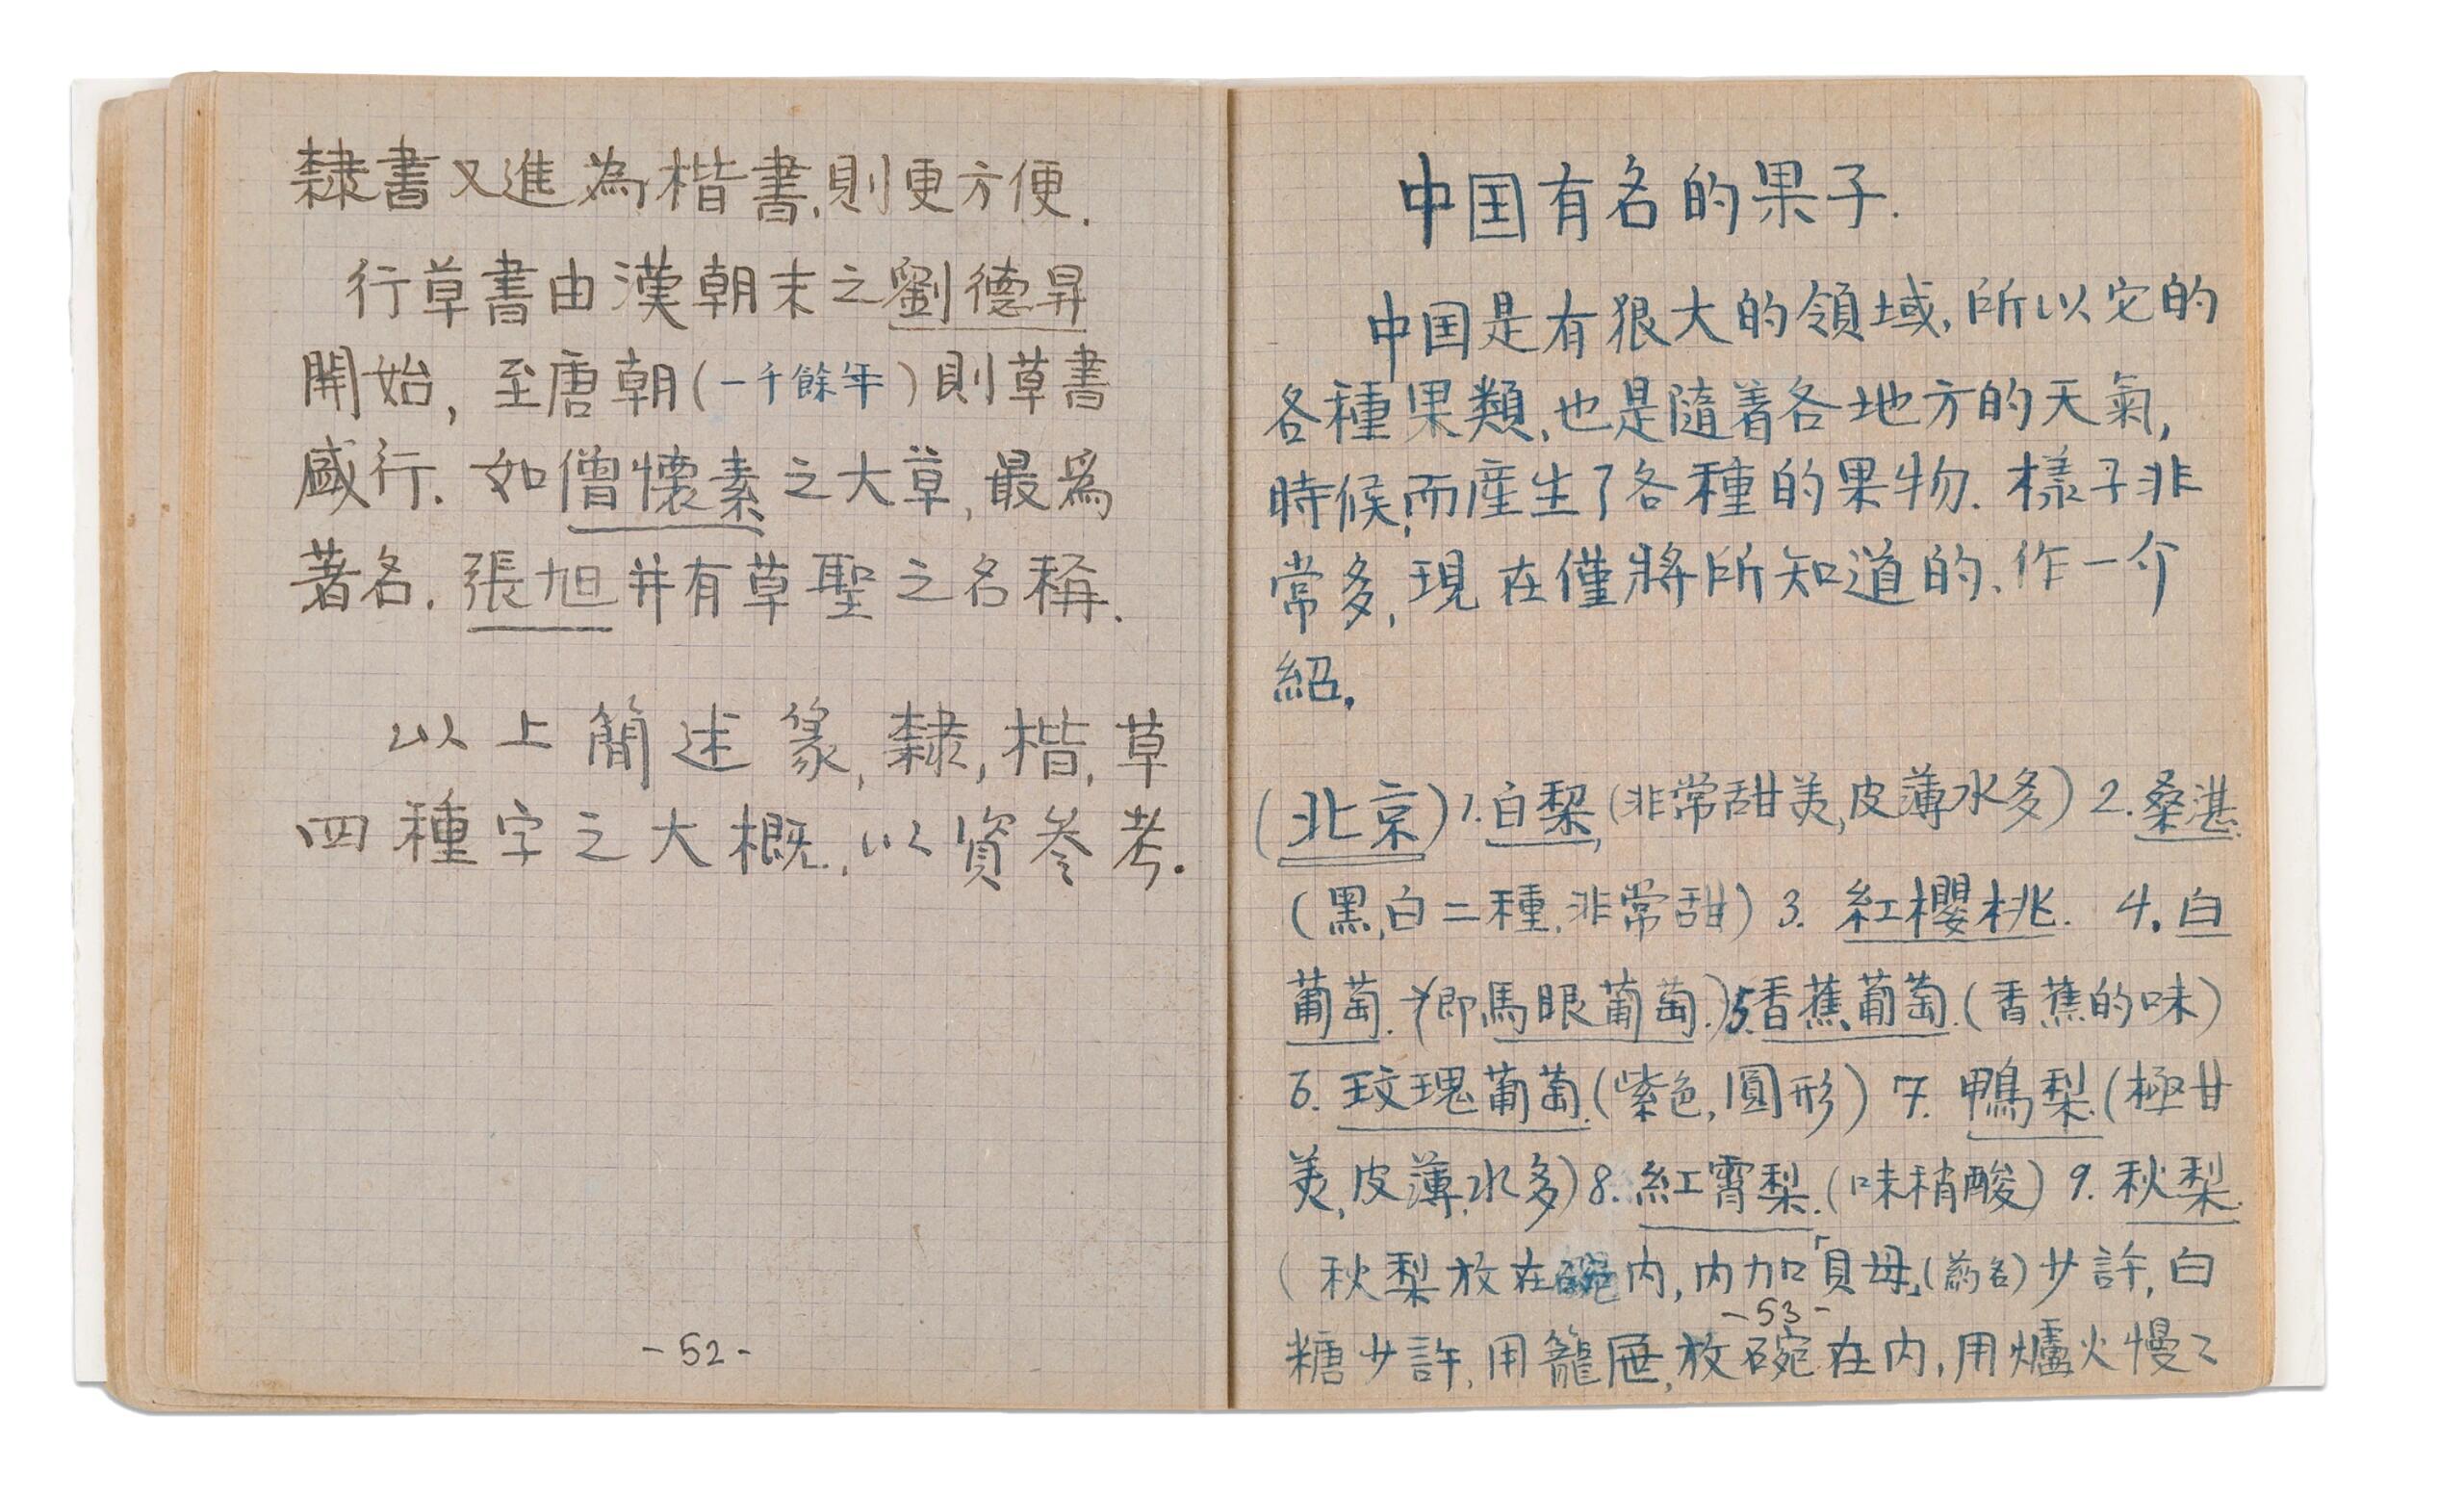 隸書又進為楷書,則更方便.
行草書由漢朝末之劉德昇
開始, 至唐朝(一千餘年)則草書
盛行. 如僧懷素之大草,最爲
著名. 張旭并有草聖之名稱.
以上簡述篆,隸,楷,草
四種字之大概.以資參考.
-52-
中国有名的果子.
中国是有狠大的領域,所以它的
各種果類,也是隨着各地方的天氣,
時候,而產生了各種的果物.樣子非
常多,現在僅將所知道的,作一介
紹.
(北京)1.白梨,(非常甜美,皮薄水多) 2.桑湛.
(黑,白二種,非常甜) 3. 紅櫻桃. 4.白
葡萄.(即馬眼葡萄.)5.香蕉葡萄.(香蕉的味)
6. 玟瑰葡萄.(紫色,圓形) 7. 鴨梨.(極甘
美,皮薄,水多)8.紅霄梨.(味稍酸) 9.秋梨.
(秋梨放在碗内,内加「貝母」(葯名)少許,白
-53-
糖少許,用籠屜,放碗在内,用爐火慢々